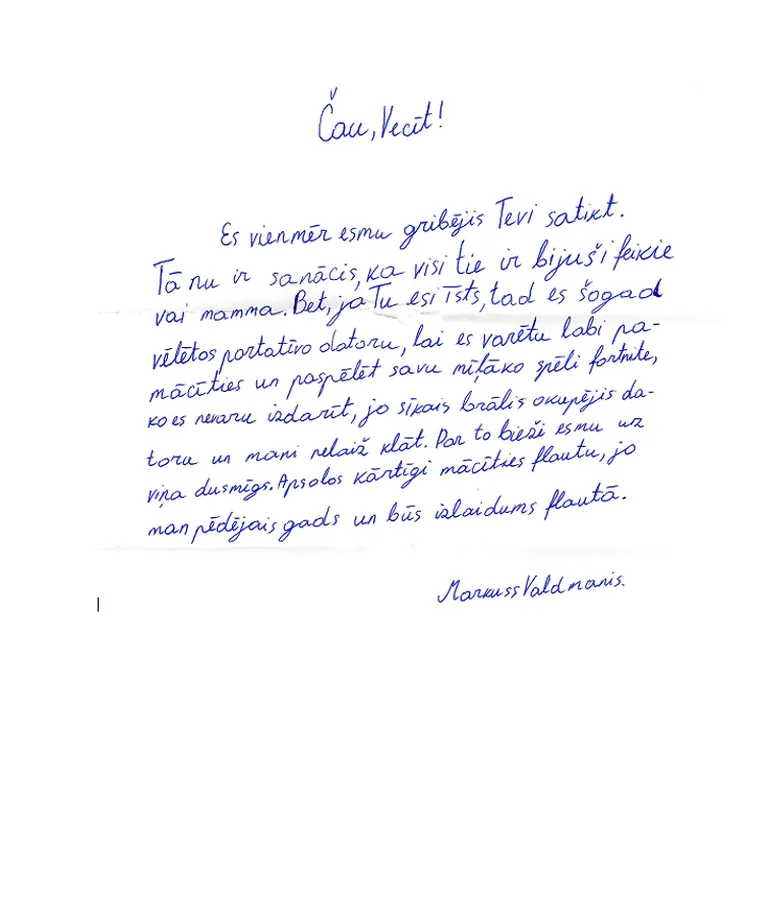 Čau, Vecīt!
Es vienmēr esmu gribējis Tevi satikt.
Tā nu ir sanācis, ka visi tie ir bijuši feikie
vai mamma. Bet, ja Tu esi īsts, tad es šogad
vēlētos portatīvo datoru, lai es varētu labi pa-
mācīties un paspēlēt savu mīļāko spēli fortnite,
ko es nevaru izdarīt, jo sīkais brālis okupējis da-
toru un mani nelaiž klāt. Par to bieži esmu uz
viņa dusmīgs. Apsolos kārtīgi mācīties flautu, jo
man pēdējais gads un būs izlaidums flautā.
Markuss Valdmanis.